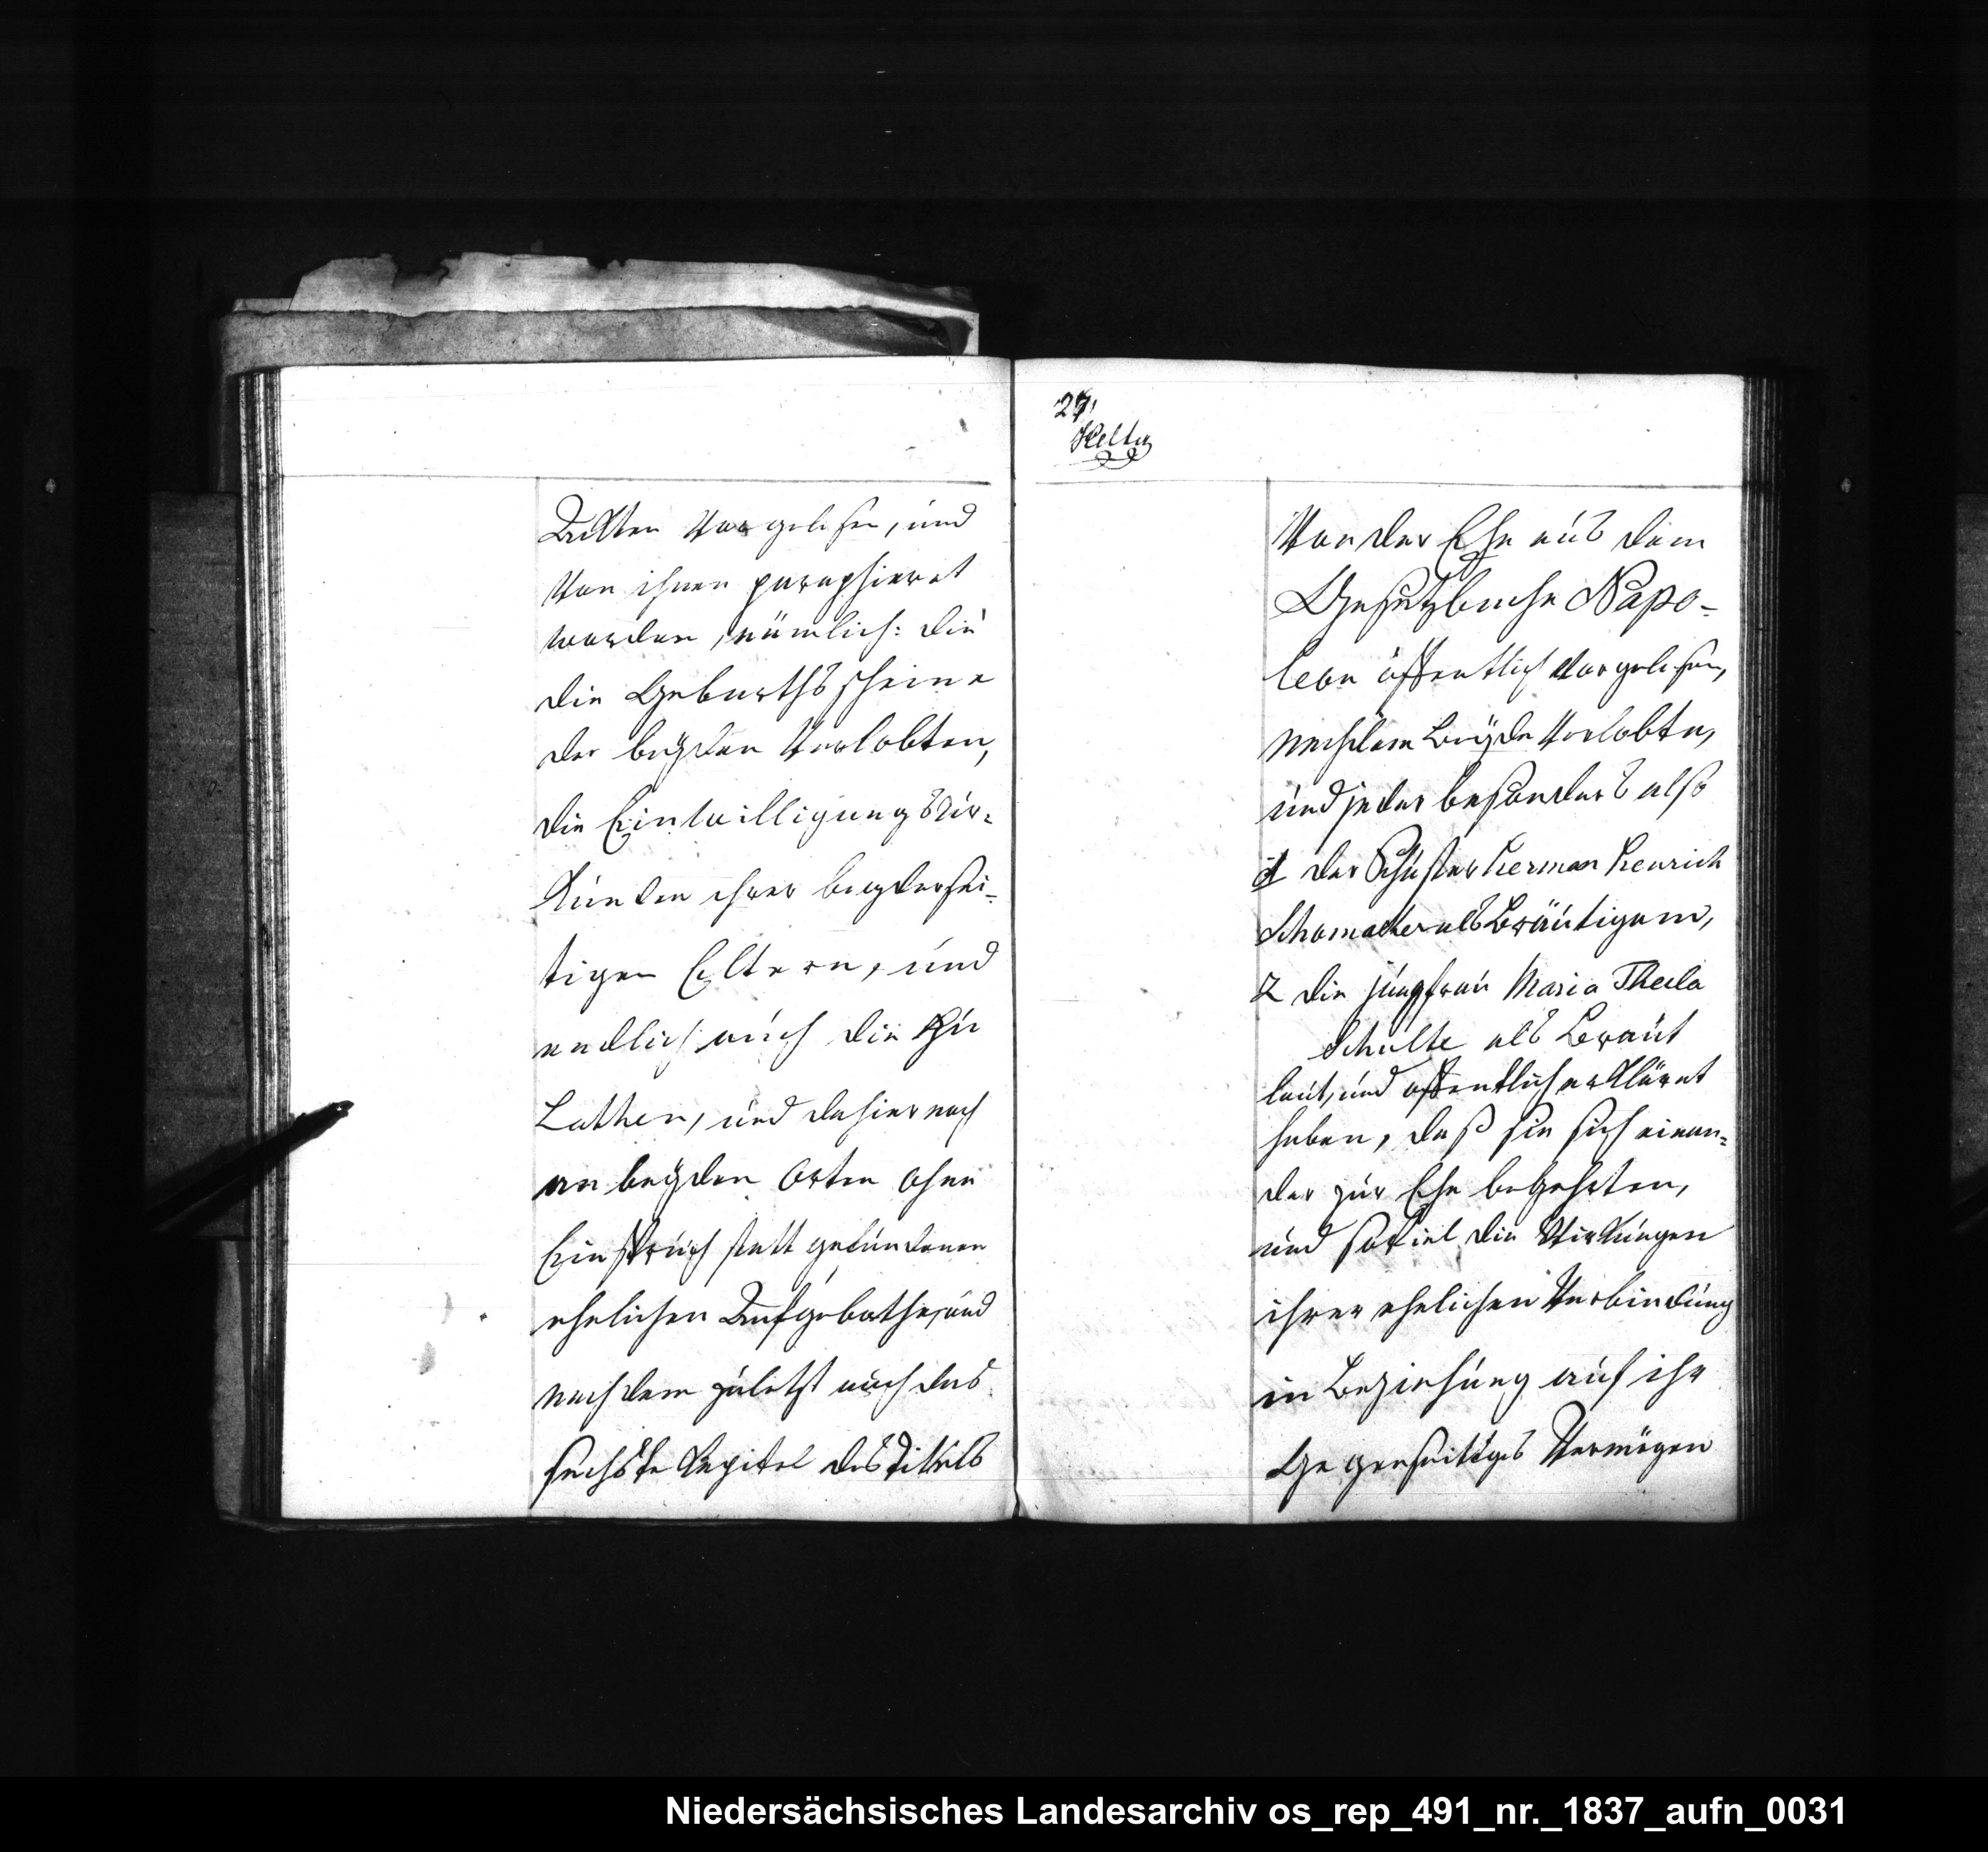 Ackten vorgelesen, und
von ihnen paraphieret
worden, nämlich: die
die Geburthsscheine
der beyden Verlobten,
die Einwilligungsúr-
kúnden ihrer beydersei-
tigen Eltern, und
endlich aúch die zú
Lathen, und dahier nach
an beyden Orten ohne
Einsprúch statt gefúndenen
ehelichen Aufgebothe, und
nachdem zúletzt aúch das
sechste Kapitel des Titels
27,
Von der Ehe aús dem
Gesetzbuche Napo-
leon öffentlich vorgelesen,
nachdem beyde Verlobte,
únd jeder besonders als
1 der Schúster Herman Henrich
Schomacker als Bräútigam,
2 die júngfraú Maria Thecla
Schulte als Braút
laút, únd öffentlich erkläret
haben, daß sie sich einan-
der zúr Ehe begehrten,
únd soviel die Wirkúngen
ihrer ehelichen Verbindúng
in Beziehúng aúf ihr
Gegenseitiges Vermögen
Niedersächsisches Landesarchiv os_rep_491_nr._1837_aufn_0031